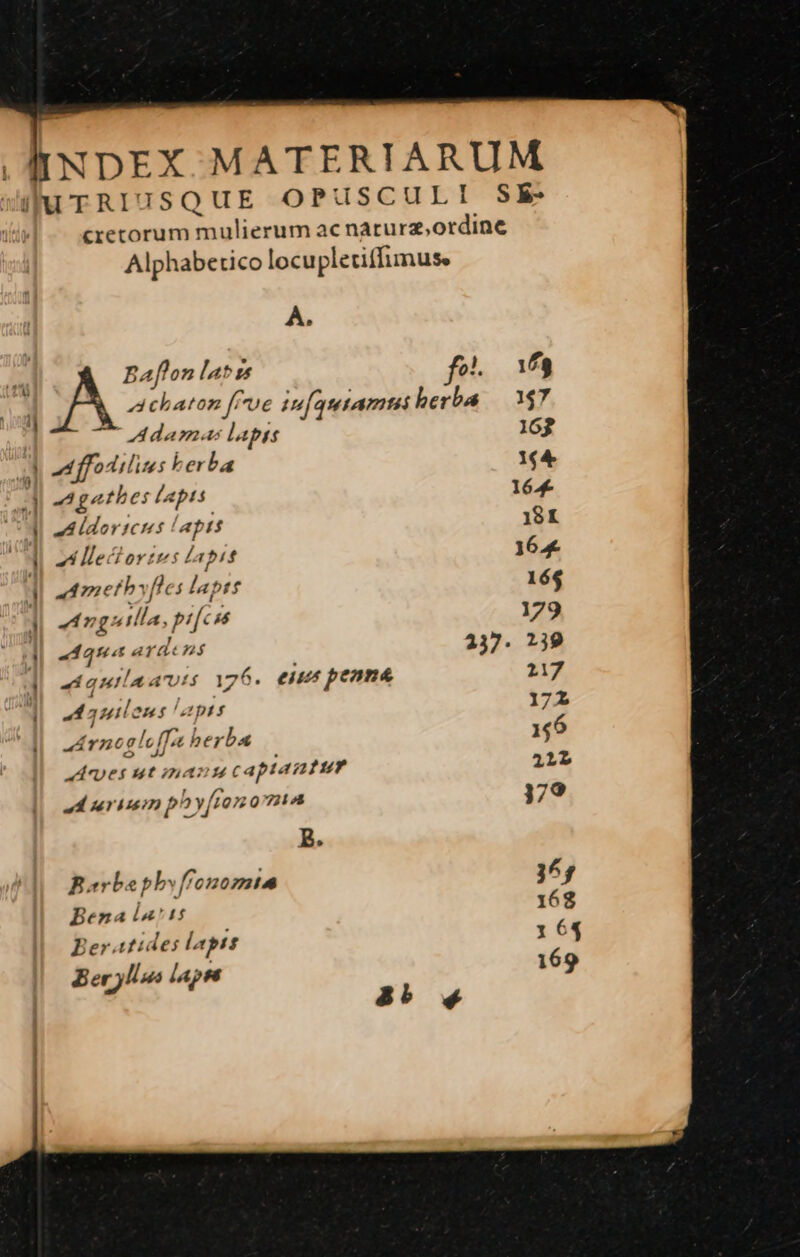 INDEX MATERIARUM
UTRIUSQUE OPUSCULI SE-
cretorum mulierum ac naturæ, ordine
Alphabetico locupletiſſimus.
A.
ABaſton lapis fol. 169
Achaton ſive iuſquiamus herba 157
Adamas lapis 163
Affodilius herba 154
Agathes lapis 164
Aldoricus lapis 181
Allectorius lapis 164
Amethyſtes lapis 165
Anguilla, piſcis 179
Aqua ardens 237. 239
Aquila avis 176. eius penna 217
Aquileus lapis 172
Arnogloſſa herba 156
Aves ut manu capiantur 212
Aurium phyſionomia 379
B.
Barbæ phyſionomia 365
Bena lapis 168
Beratides lapis 165
Beryllus lapis 169
Bb 4